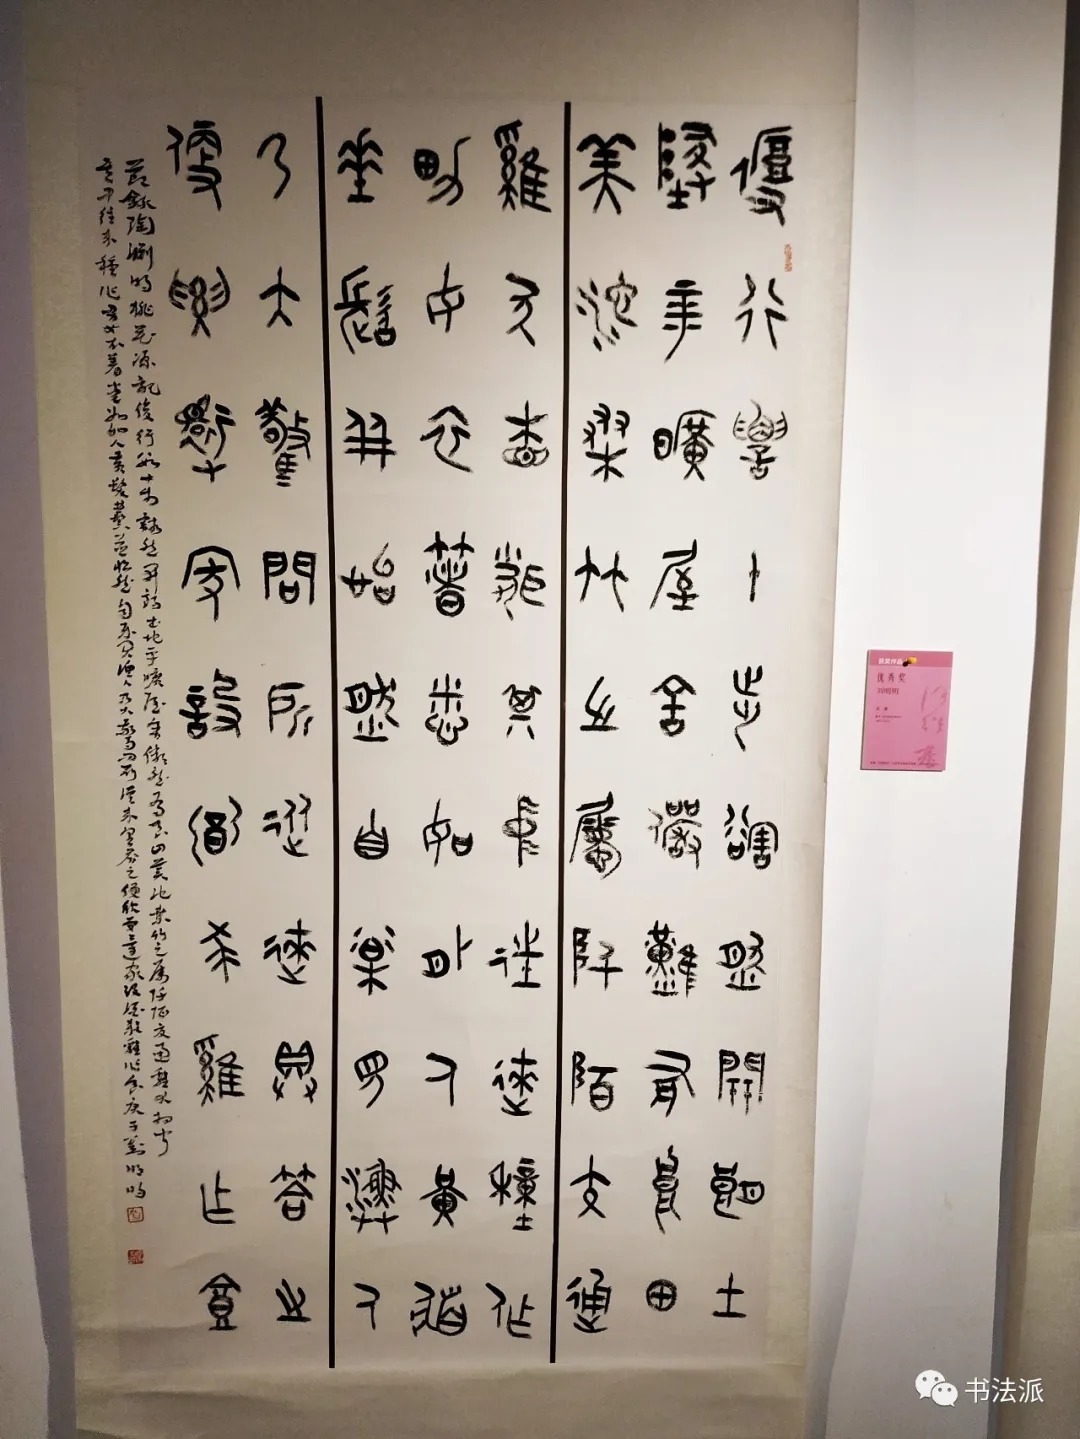 復行數十步豁然開朗土
地平曠屋舍儼然有良田
美池桑竹之屬阡陌交通
雞犬相聞其中往來種作
男女衣著悉如外人黃髮
垂髫並怡然自樂見漁人
乃大驚問所從來具答之
便要還家設酒殺雞作食
節錄陶淵明桃花源記復行數十步豁然開朗土地平曠屋舍儼然有良田美池桑竹之屬阡陌交通雞犬相聞
其中往來種作男女衣著悉如外人黃髮垂髫並怡然自樂見漁人乃大驚問所從來具答之便要還家設酒殺雞作食庚子劉明明
获奖作品
优秀奖
刘明明
书法派